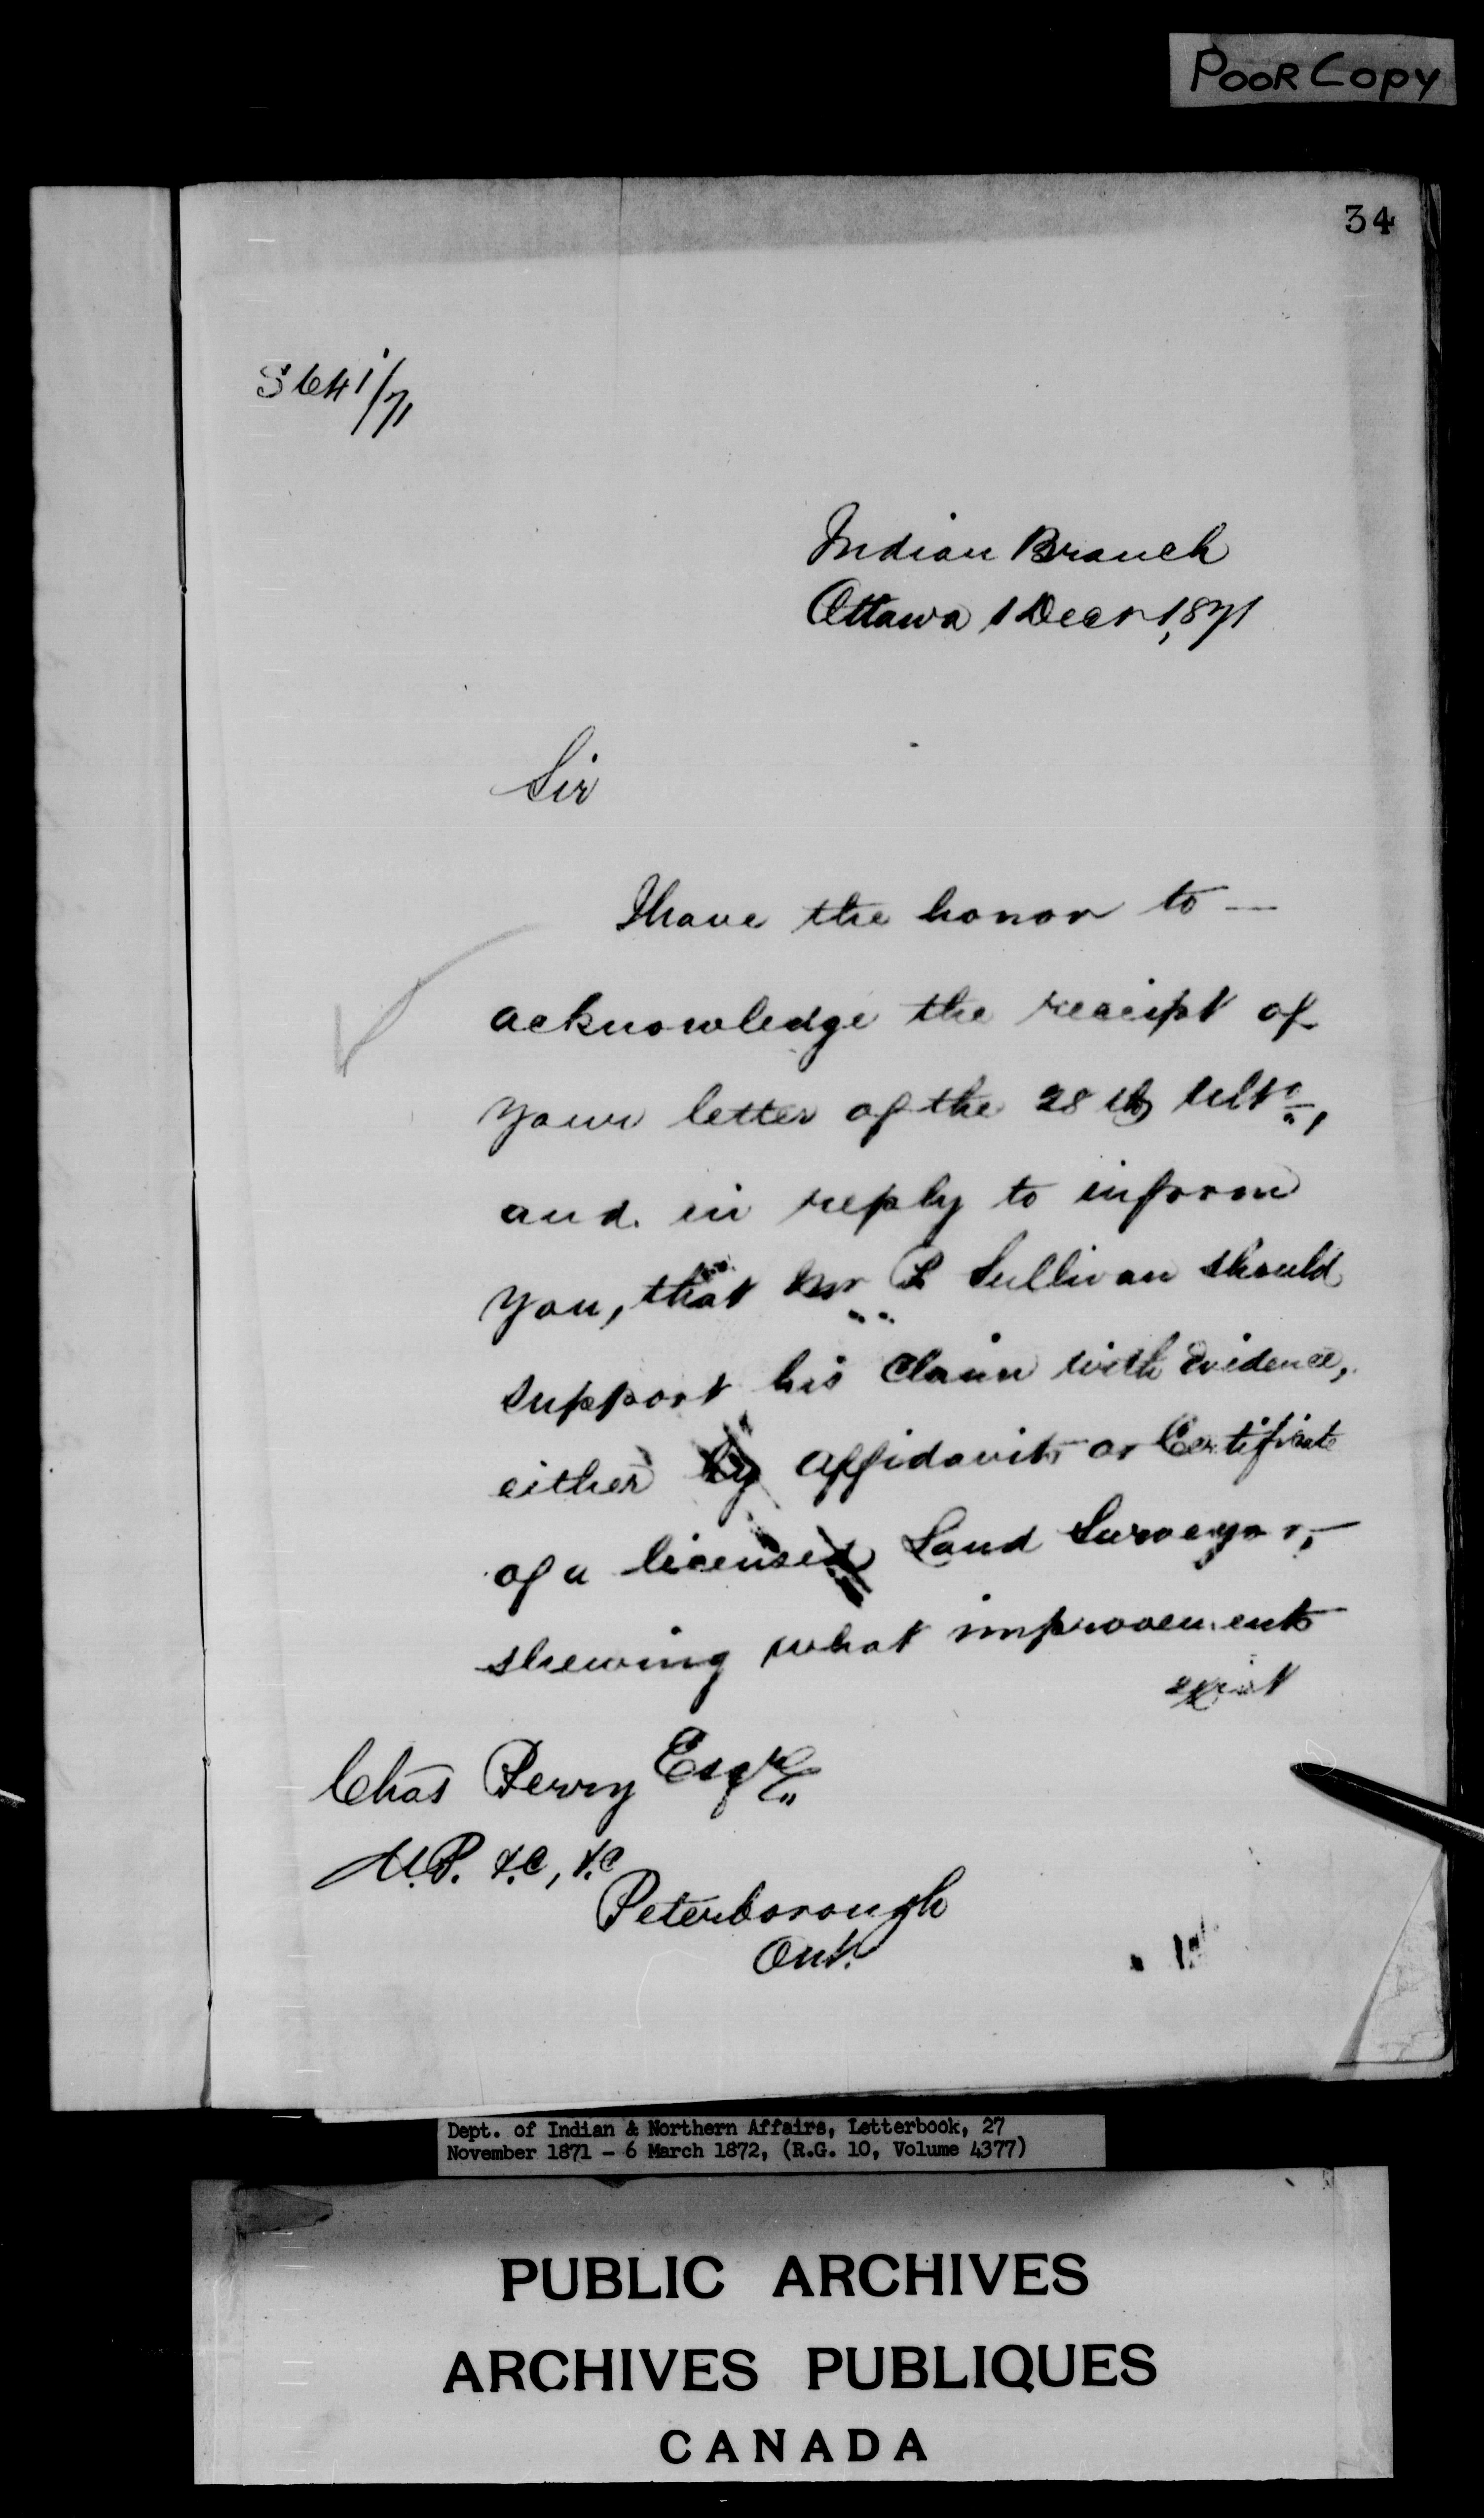 POOR COPY
34
S641/71
Indian Branch
Ottawa 1 Decr 1,871
Sir
I have the honor to —
acknowledge the receipt of
your letter of the 28th ulto,
and in reply to inform
you, that Mr P Sullivan should
support his Claim with Evidence,
either by affidavits or Certificate
of a licensed Land Surveyor,—
shewing what improvements
exist
Chas Perry Esqre
M.P. &c, &c
Peterborough
Ont.
Dept. of Indian & Northern Affairs, Letterbook, 27
November 1871 - 6 March 1872, (R.G. 10, Volume 4377)
PUBLIC ARCHIVES
ARCHIVES PUBLIQUES
CANADA